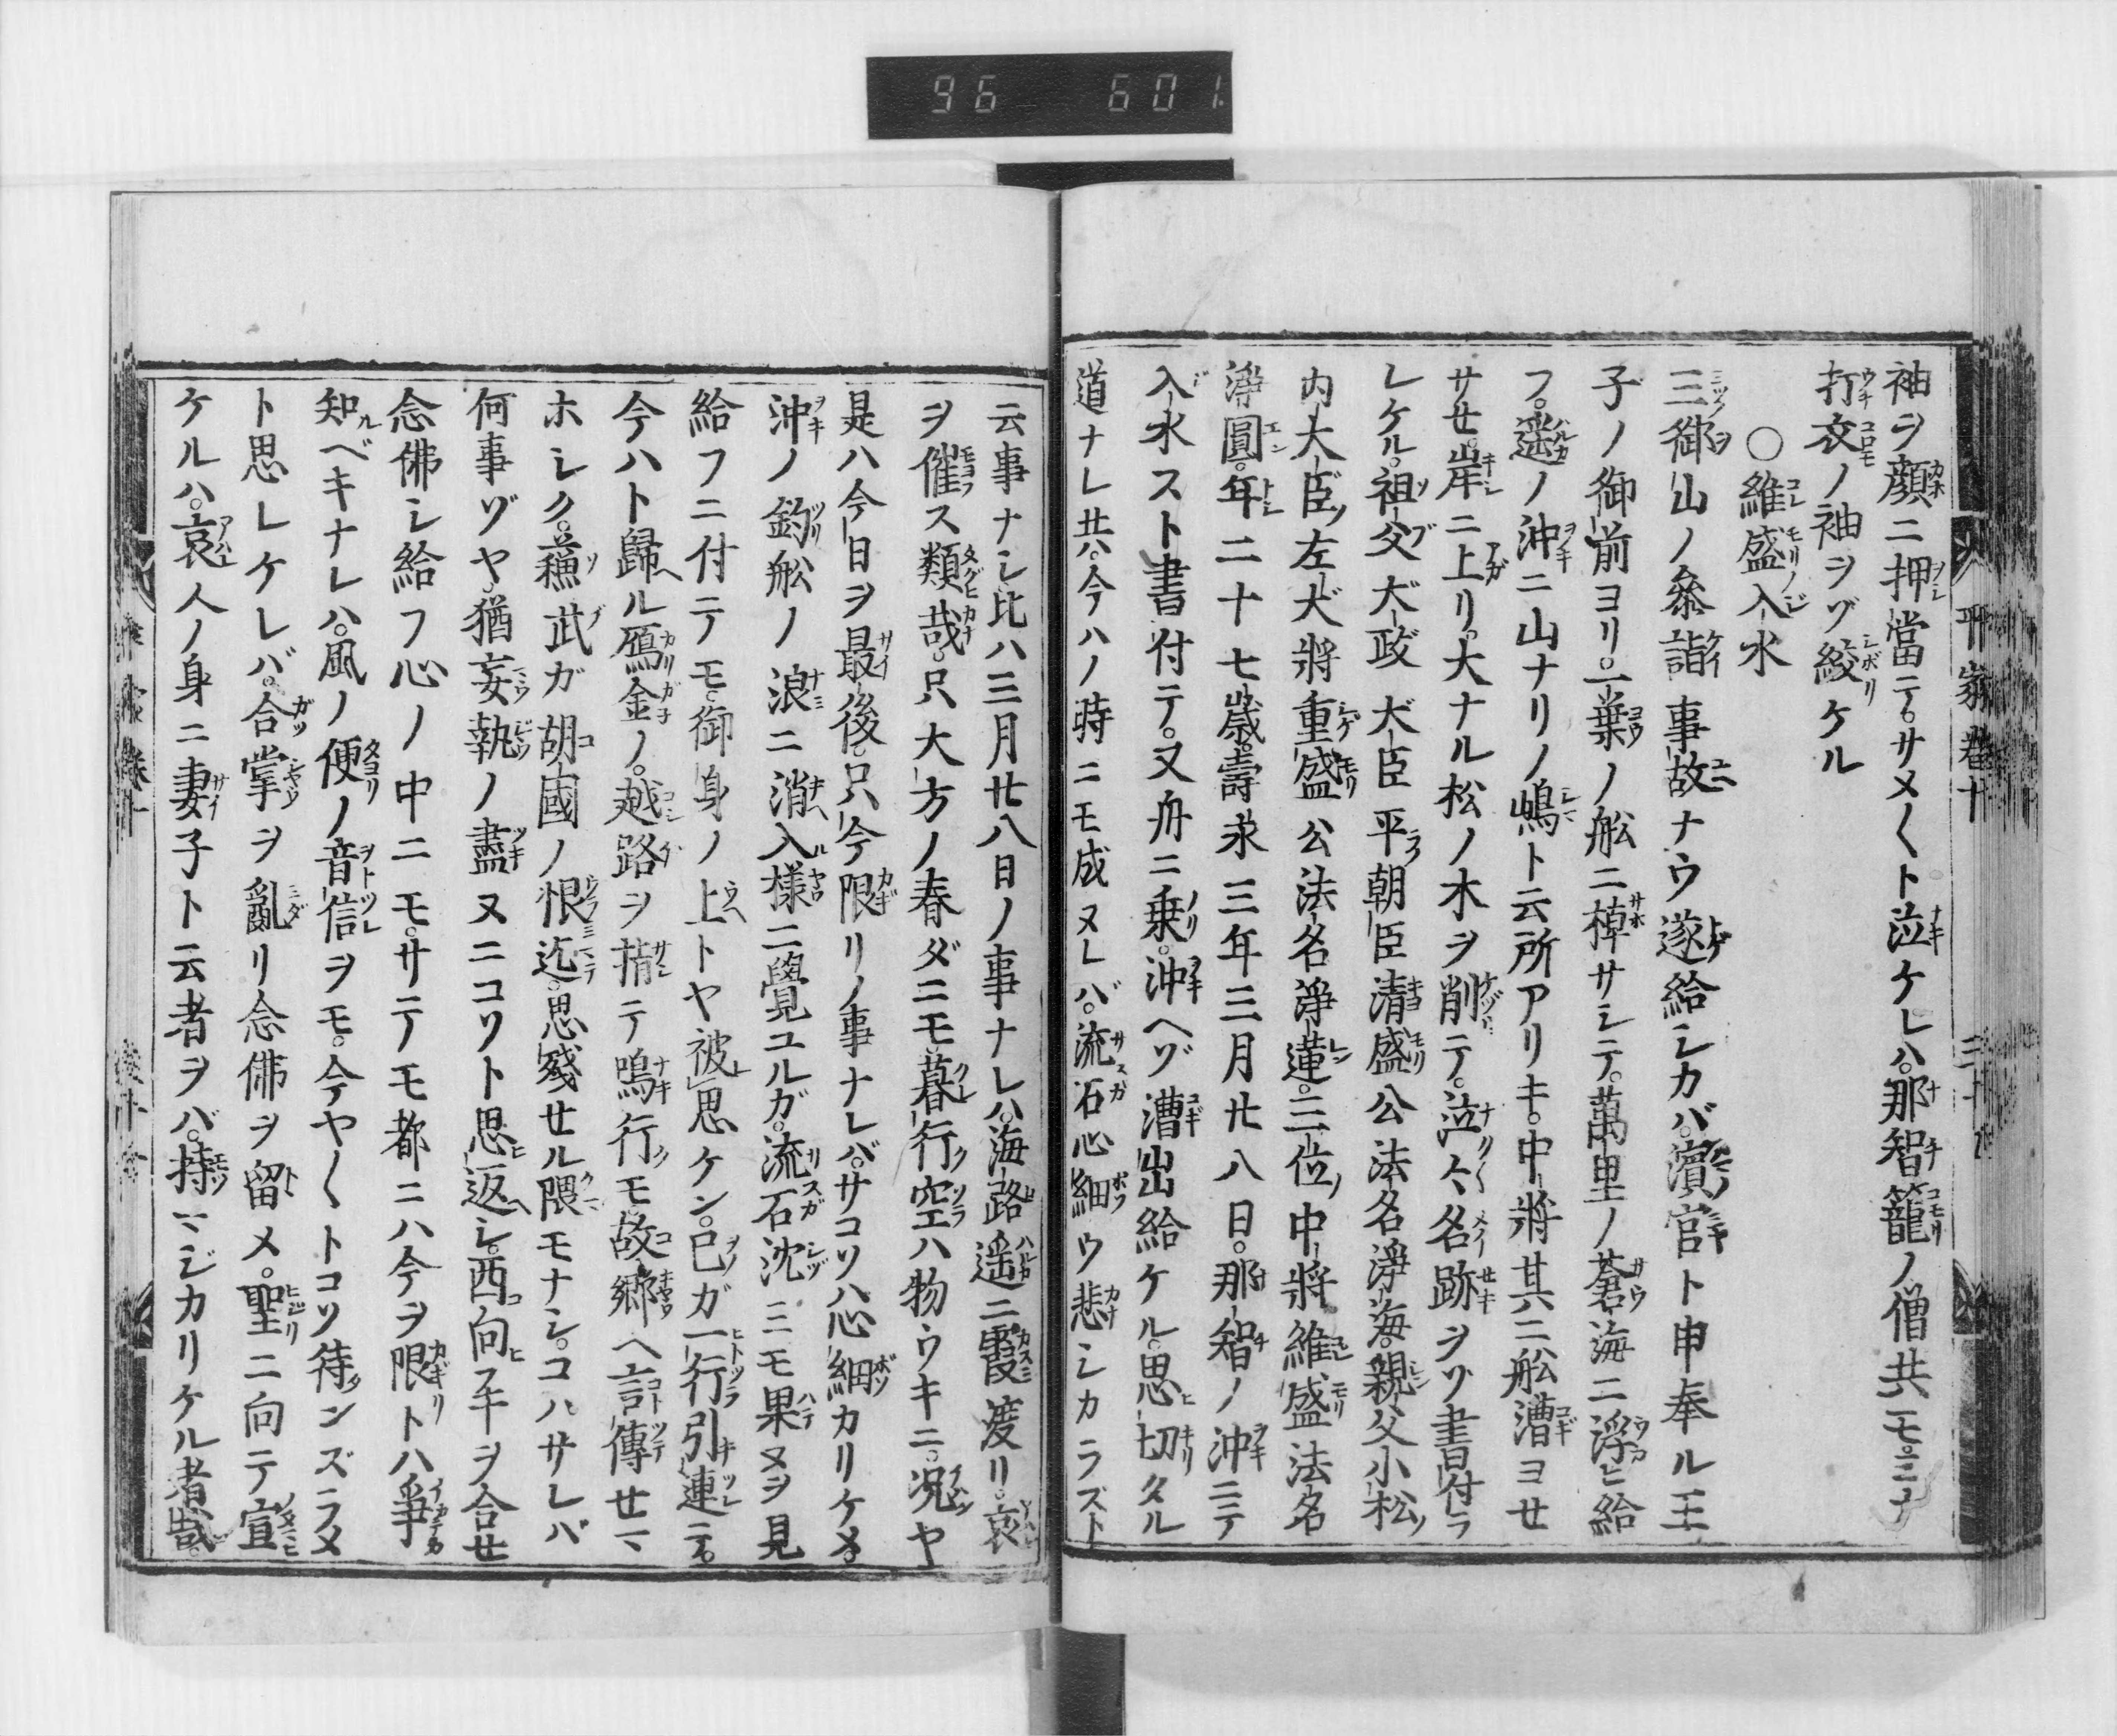 96 601
袖ヲ顔ニ押當テ。サメ〱ト泣ケレハ。那智籠ノ僧共モ。ミナ
打衣ノ袖ヲゾ絞ケル
○維盛入水
三御山ノ叅詣事故ナウ遂給シカバ。濱宮ト申奉ル王
子ノ御前ヨリ。一葉ノ舩ニ棹サシテ。萬里ノ蒼海ニ浮ヒ給
フ。遥ノ沖ニ山ナリノ嶋ト云所アリキ。中將其ニ舩漕ヨセ
サせ。岸ニ上リ。大ナル松ノ木ヲ削テ。泣〻名跡ヲソ書付ラ
レケル。祖父大政大臣平朝臣清盛公法名淨海。親父小松ノ
内大臣ノ左大將重盛公法名淨蓮。三位ノ中將維盛法名
淨圓。年二十七歳。壽永三年三月廿八日。那智ノ沖ニテ
入水スト書付テ。又舟ニ乗。沖ヘゾ漕出給ケル。思切タル
道ナレ共。今ハノ時ニモ成ヌレバ。流石心細ウ悲シカラズト
云事ナシ。比ハ三月廿八日ノ事ナレハ。海路遥ニ霞渡リ。哀
ヲ催ス類哉。只大方ノ春ダニモ。暮行空ハ物ウキニ。况ヤ
是ハ今日ヲ最後。只今限リノ事ナレバ。サコソハ心細カリケメ。
沖ノ釣舩ノ浪ニ消入樣ニ覺ユルガ。流石沈ミモ果ヌヲ見
給フニ付テモ。御身ノ上トヤ被思ケン。己ガ一行引連テ。
今ハト歸ル鴈金ノ。越路ヲ指テ鳴行モ。故郷ヘ言傳せマ
ホシク。蘓武ガ胡國ノ恨迄。思殘せル隈モナシ。コハサレバ
何事ゾヤ。猶妄執ノ盡ヌニコソト思返シ。西向手ヲ合せ
念佛シ給フ心ノ中ニモ。サテモ都ニハ今ヲ限トハ爭
知ベキナレハ。風ノ便ノ音信ヲモ。今ヤ〱トコソ待ンズラメ
ト思レケレバ。合掌ヲ亂リ念佛ヲ留メ。聖ニ向テ宣
ケルハ。哀人ノ身ニ妻子ト云者ヲバ。持マジカリケル者哉。
平家巻十